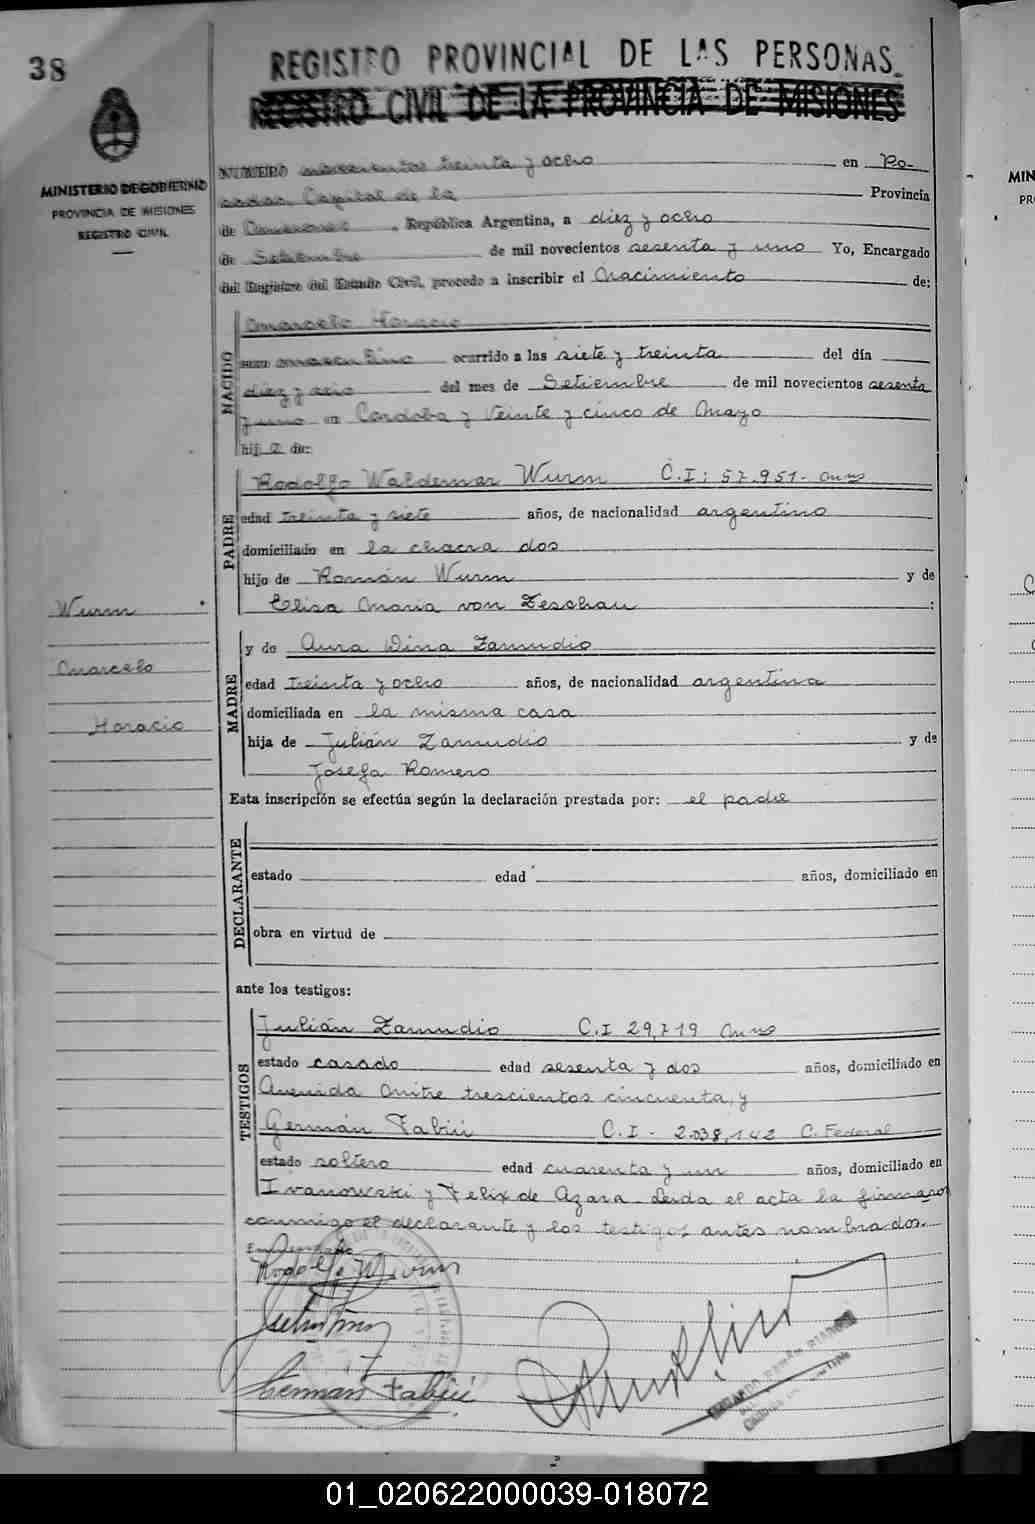 38
REGISTRO PROVINCIAL DE LAS PERSONAS
REGISTRO CIVIL DE LA PROVINCIA DE MISIONES
MINISTERIO DE GOBIERNO
PROVINCIA DE MISIONES
REGISTRO CIVIL
NUMERO novecientos treinta y ocho en Po-
sadas, Capital de la Provincia
de Misiones, República Argentina, a diez y ocho
de Setiembre de mil novecientos sesenta y uno Yo, Encargado
del Registro del Estado Civil, procedo a inscribir el Nacimiento de:
NACIDO
Marcelo Horacio
sexo masculino ocurrido a las siete y treinta del día
diez y seis del mes de Setiembre de mil novecientos sesenta
y uno en Cordoba y Veinte y cinco de Mayo
hijo de:
PADRE
Rodolfo Waldemar Wurm C.I: 57.951- Mnes
edad treinta y siete años, de nacionalidad argentino
domiciliado en la chacra dos
hijo de Román Wurm y de
Elisa Maria von Zeschau :
Wurm
Marcelo
Horacio
MADRE
y de Aura Dina Zamudio
edad treinta y ocho años, de nacionalidad argentina
domiciliada en la misma casa
hija de Julián Zamudio y de
Josefa Romero
Esta inscripción se efectúa según la declaración prestada por: el padre
DECLARANTE
estado edad años, domiciliado en
obra en virtud de
ante los testigos:
TESTIGOS
Julián Zamudio C.I 29,719 Mnes
estado casado edad sesenta y dos años, domiciliado en
Avenida Mitre trescientos cincuenta, y
Germán Fabiú C.I - 2.038,142 C. Federal
estado soltero edad cuarenta y un años, domiciliado en
Ivanowski y Felix de Azara. Leida el acta la firmaron
conmigo el declarante y los testigos antes nombrados.
Rodolfo Wurm
Germán Fabiú
MIN
PR
01_020622000039-018072